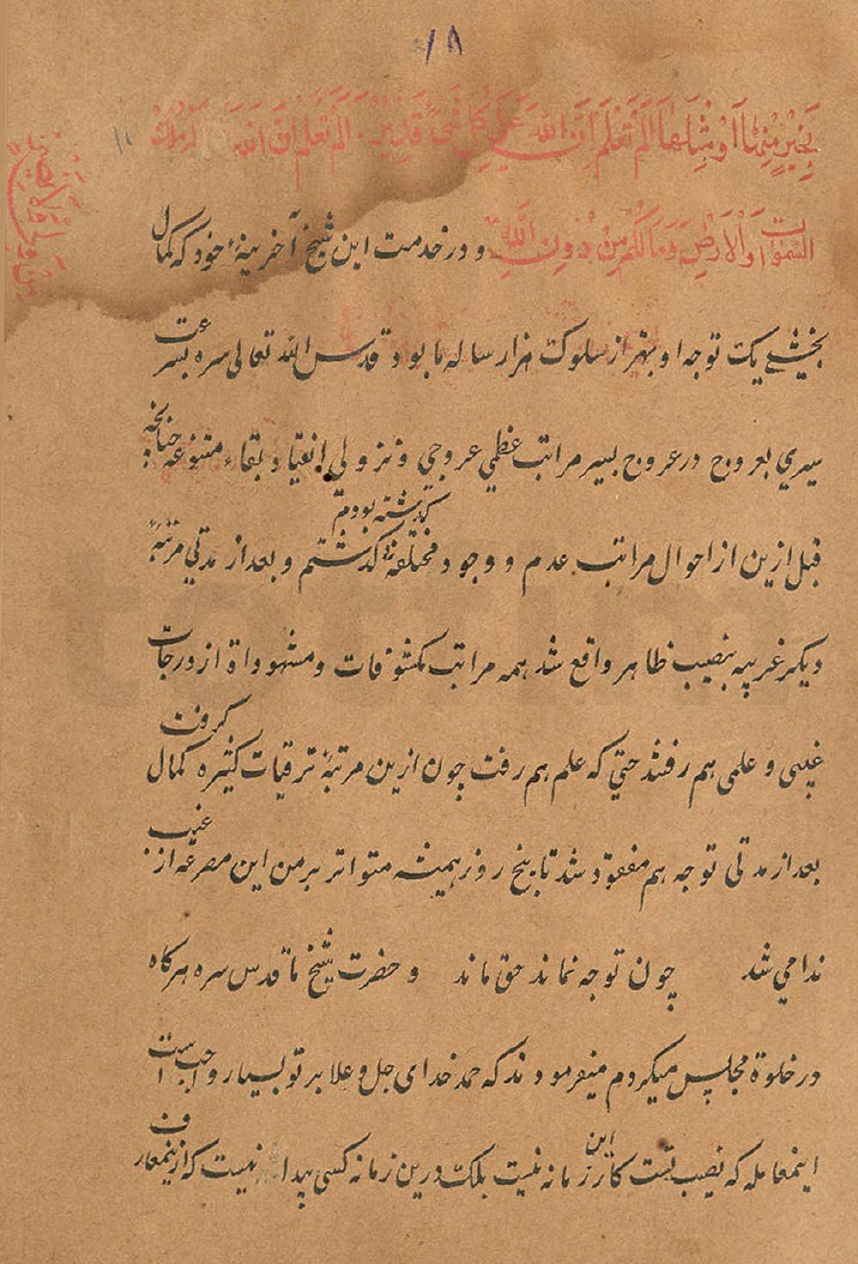 ١٨
بِخَيْرٍ مِنْهَا اَوْ مِثْلِهَا اَلَمْ تَعْلَمْ اَنَّ اللهَ عَلَى كُلِّ شَىْءٍ قَدِيْرٌ اَلَمْ تَعْلَمْ اَنَّ اللهَ لَهُ مُلْكُ
السَّمٰوَاتِ وَالْاَرْضِ وَمَا لَكُمْ مِنْ دُوْنِ اللهِ و در خدمت این شیخ آخرینهٔ خود که کمال
بخشی یک توجه او بهتر از سلوک هزار ساله ما بود قدس الله تعالی سره بسرعت
سیری بعروج در عروج بسیر مراتب عظمی عروجی و نزولی و بقاء متنوعه چنانچه
قبل ازین از احوال مراتب عدم و وجود مختلفه گذشته بودم گذشتم و بعد از مدتی مرتبهٔ
دیکر غریبه بنصیب ظاهر واقع شد همه مراتب مکشوفات و مشهوداة از درجات
غیبی و علمی هم رفتند حتی که علم هم رفت چون ازین مرتبهٔ ترقیات کثیره کمال گرفت
بعد از مدتی توجه هم مفقود شد تا پنج روز همیشه متواتر بر من این مصرعه از غیب
ندا می شد چون توجه نماند حق ماند و حضرت شیخ ما قدس سره هرگاه
در خلوة مجلس میکردم میفرمودند که حمد خدای جل و علا بر تو بسیار واجب است
اینمعامله که نصیب تست کار این زمانه نیست بلکه درین زمانه کسی پیدا نیست که ازینمعارف